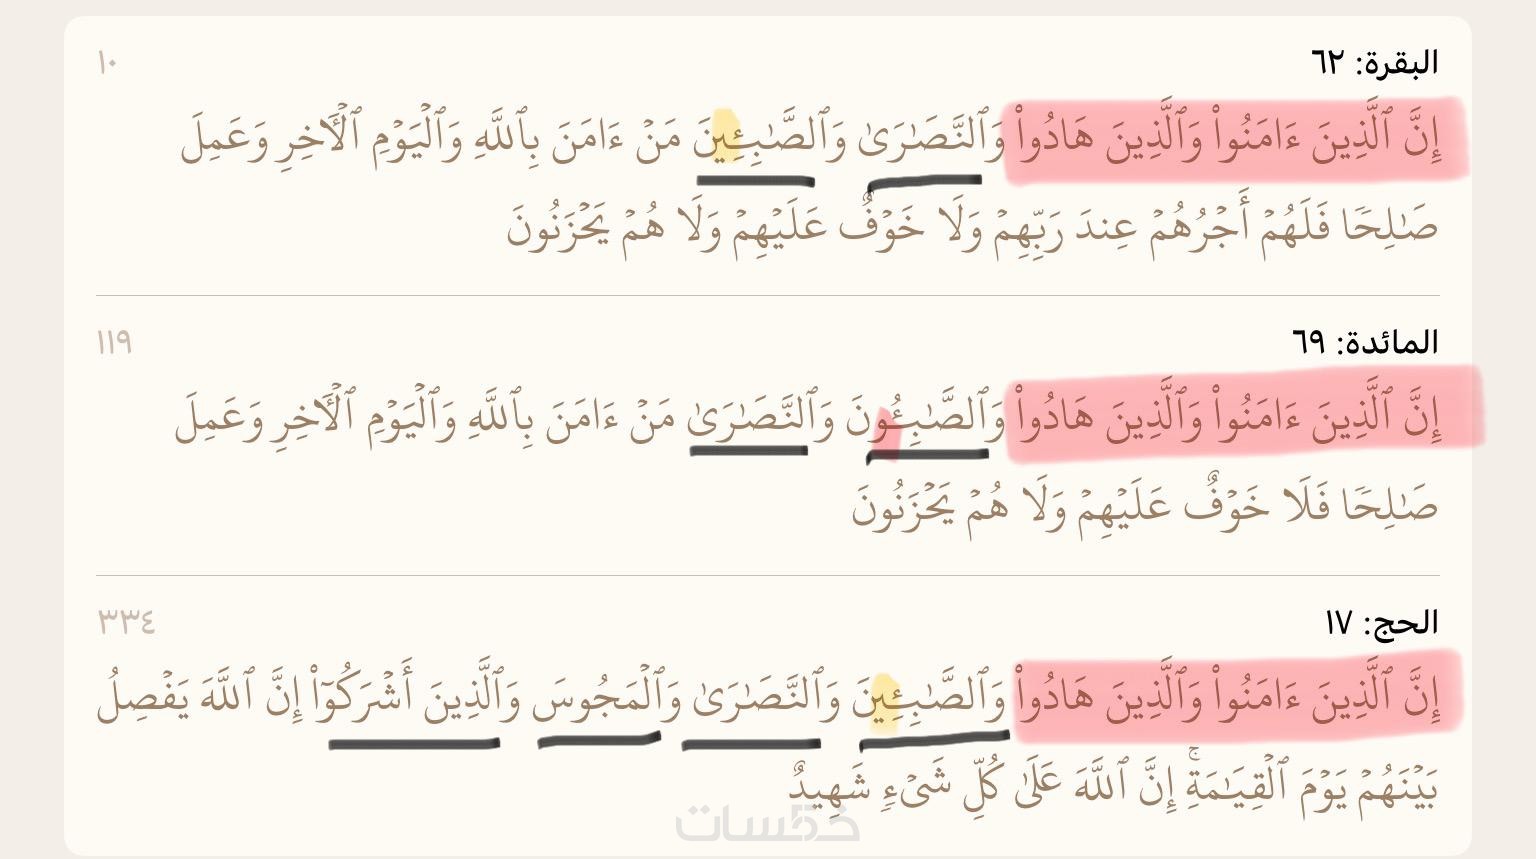 البقرة: ٦٢
١٠
إِنَّ ٱلَّذِينَ ءَامَنُوا۟ وَٱلَّذِينَ هَادُوا۟ وَٱلنَّصَـٰرَىٰ وَٱلصَّـٰبِـِٔينَ مَنْ ءَامَنَ بِٱللَّهِ وَٱلْيَوْمِ ٱلْـَٔاخِرِ وَعَمِلَ
صَـٰلِحًا فَلَهُمْ أَجْرُهُمْ عِندَ رَبِّهِمْ وَلَا خَوْفٌ عَلَيْهِمْ وَلَا هُمْ يَحْزَنُونَ
المائدة: ٦٩
١١٩
إِنَّ ٱلَّذِينَ ءَامَنُوا۟ وَٱلَّذِينَ هَادُوا۟ وَٱلصَّـٰبِـُٔونَ وَٱلنَّصَـٰرَىٰ مَنْ ءَامَنَ بِٱللَّهِ وَٱلْيَوْمِ ٱلْـَٔاخِرِ وَعَمِلَ
صَـٰلِحًا فَلَا خَوْفٌ عَلَيْهِمْ وَلَا هُمْ يَحْزَنُونَ
الحج: ١٧
٣٣٤
إِنَّ ٱلَّذِينَ ءَامَنُوا۟ وَٱلَّذِينَ هَادُوا۟ وَٱلصَّـٰبِـِٔينَ وَٱلنَّصَـٰرَىٰ وَٱلْمَجُوسَ وَٱلَّذِينَ أَشْرَكُوٓا۟ إِنَّ ٱللَّهَ يَفْصِلُ
بَيْنَهُمْ يَوْمَ ٱلْقِيَـٰمَةِ ۚ إِنَّ ٱللَّهَ عَلَىٰ كُلِّ شَىْءٍ شَهِيدٌ
خمسات